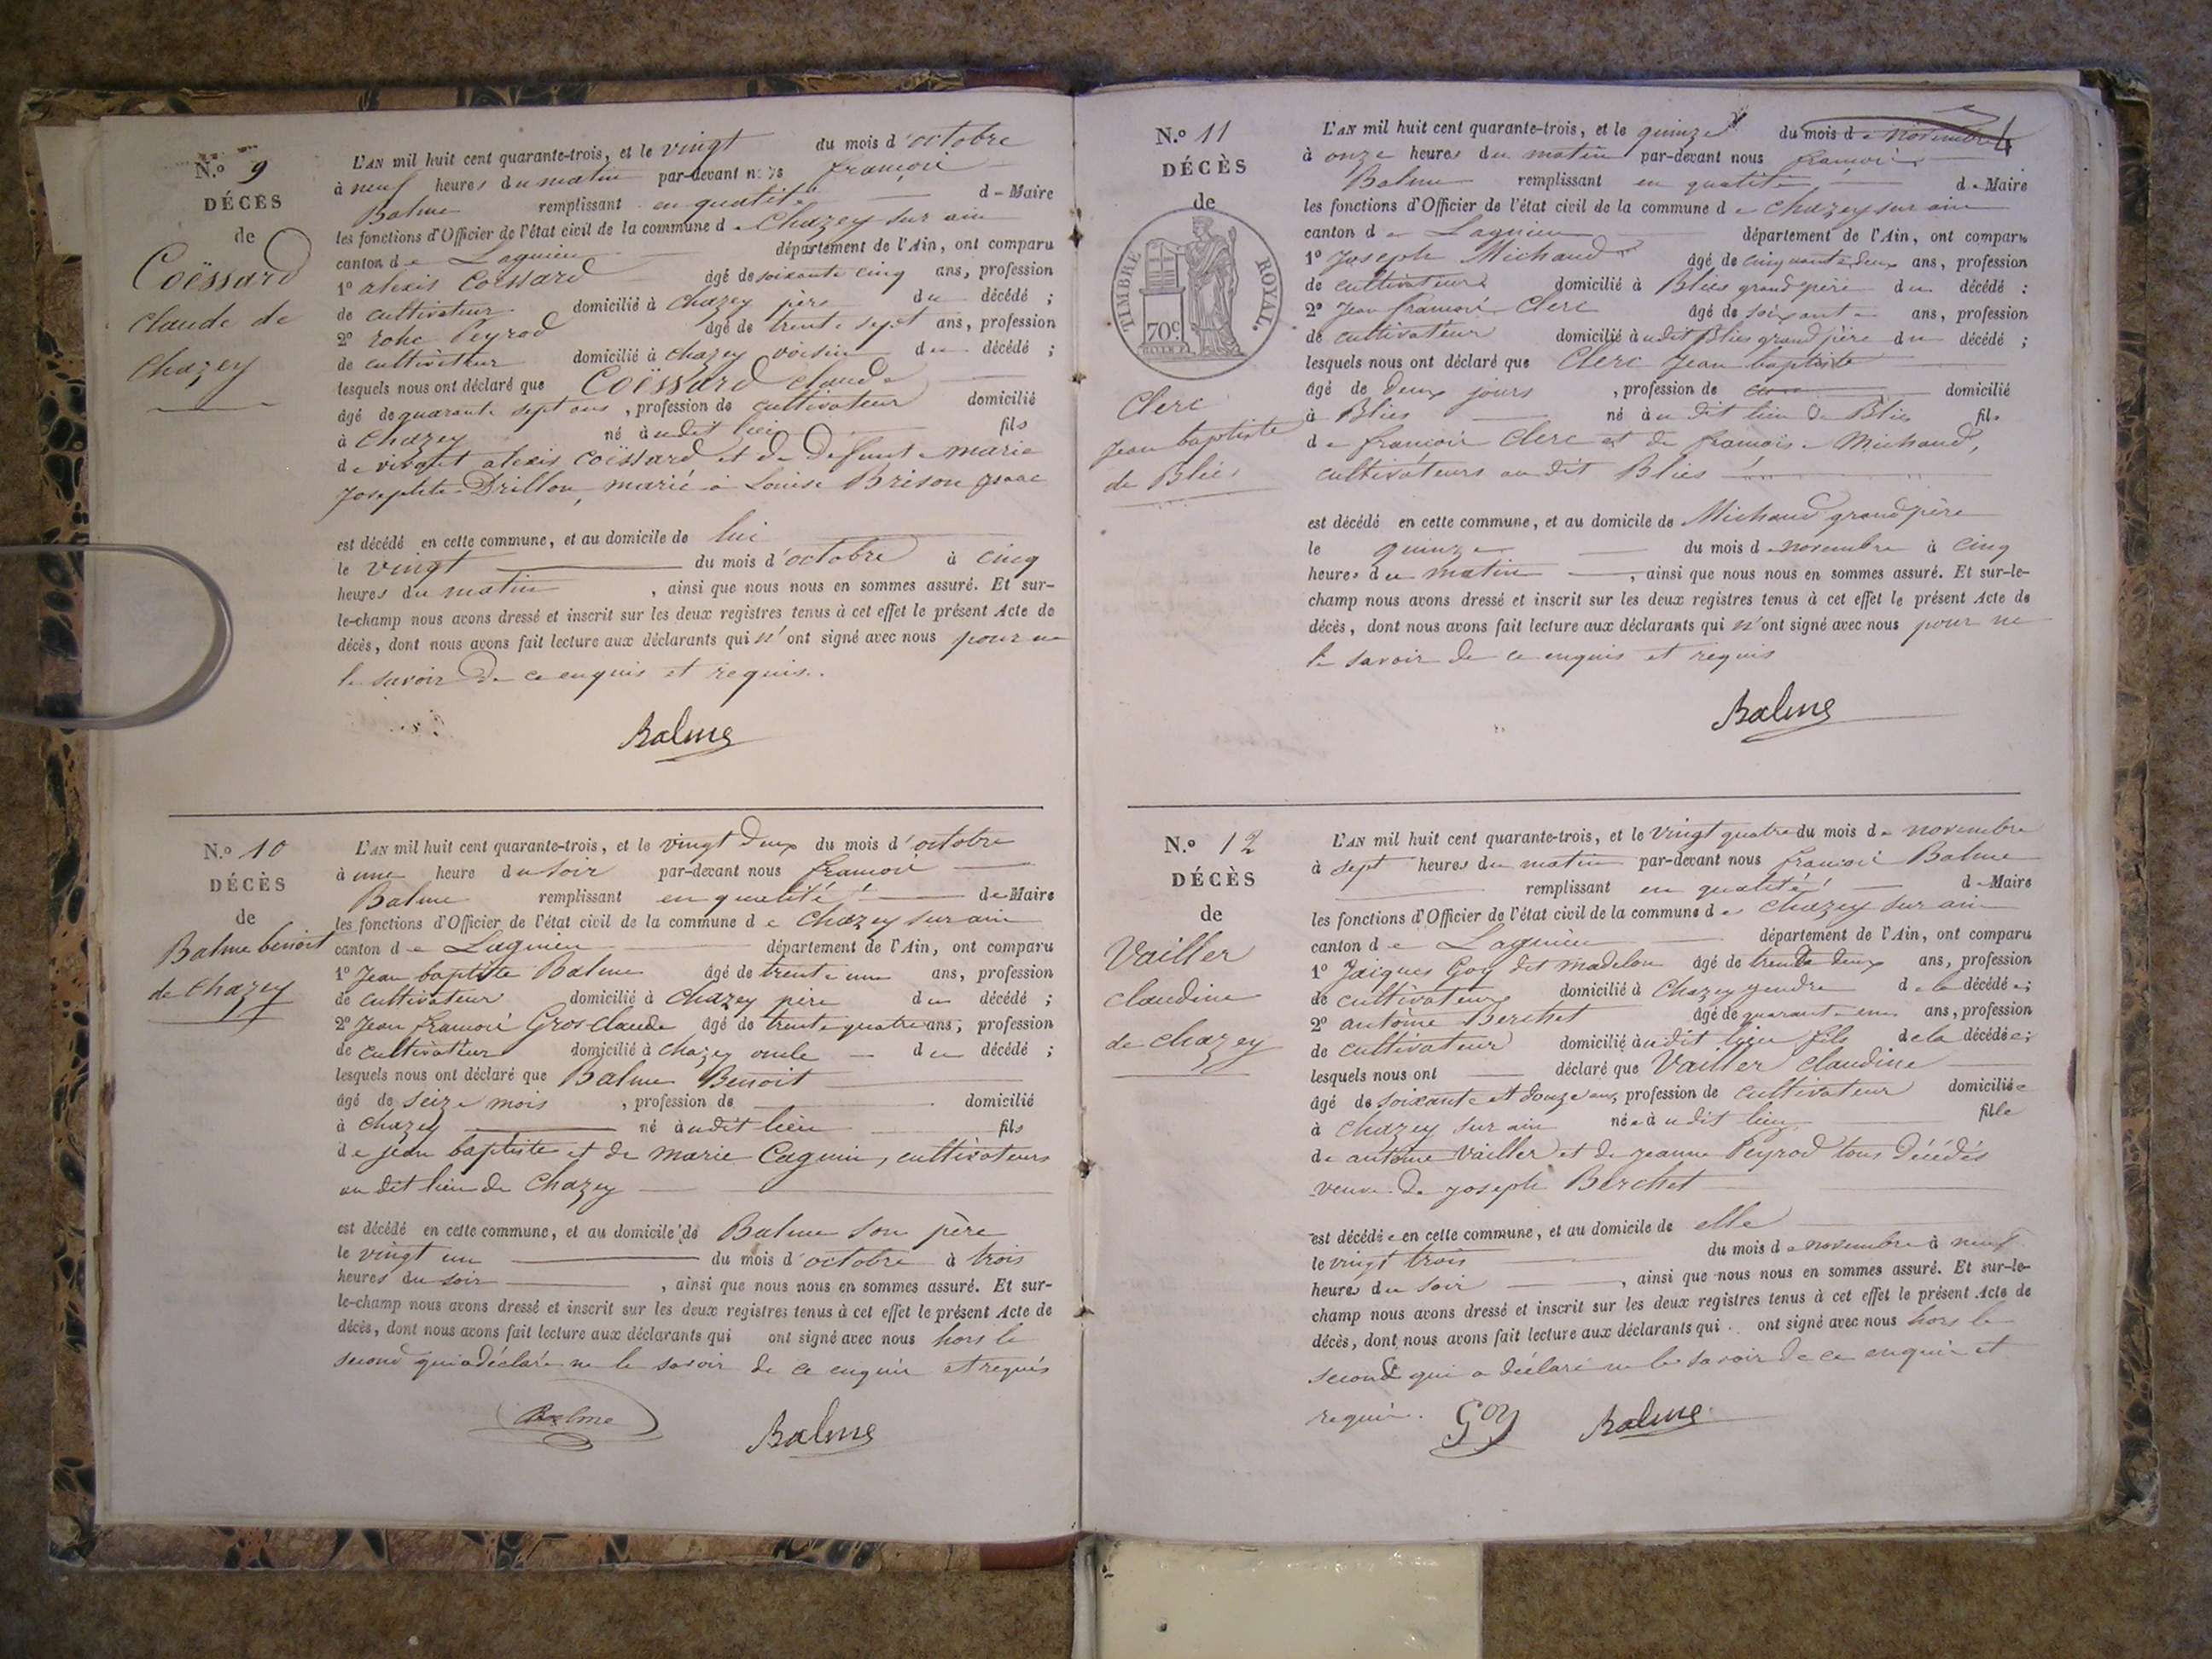 N.º 9
DÉCÈS
de
Coëssard
claude de
chazey
L'AN mil huit cent quarante-trois, et le vingt du mois d'octobre
à neuf heures du matin par-devant nous françois
Balme remplissant en qualité de Maire
les fonctions d'Officier de l'état civil de la commune de Chazey sur ain
canton de Lagnieu département de l'Ain, ont comparu
1º alexis Coëssard âgé de soixante cinq ans, profession
de cultivateur domicilié à Chazey père du décédé ;
2º rohc Peyrod âgé de trente sept ans, profession
de cultivateur domicilié à chazey voisin du décédé ;
lesquels nous ont déclaré que Coëssard claude
âgé de quarante sept ans, profession de cultivateur domicilié
à Chazey né àudit lieu fils
de vivant alexis Coëssard et de défunte marie
Josephte Drillon, marié à Louise Brison
est décédé en cette commune, et au domicile de lui
le vingt du mois d'octobre à cinq
heures du matin, ainsi que nous nous en sommes assuré. Et sur-
le-champ nous avons dressé et inscrit sur les deux registres tenus à cet effet le présent Acte de
décès, dont nous avons fait lecture aux déclarants qui n'ont signé avec nous pour ne
le savoir de ce enquis et requis.
Balme
N.º 10
DÉCÈS
de
Balme benoit
de Chazey
L'AN mil huit cent quarante-trois, et le vingt deux du mois d'octobre
à une heure du soir par-devant nous françois
Balme remplissant en qualité de Maire
les fonctions d'Officier de l'état civil de la commune de Chazey sur ain
canton de Lagnieu département de l'Ain, ont comparu
1º Jean baptiste Balme âgé de trente une ans, profession
de cultivateur domicilié à Chazey père du décédé ;
2º Jean françois Gros claude âgé de trente quatre ans, profession
de cultivateur domicilié à chazey oncle du décédé ;
lesquels nous ont déclaré que Balme Benoit
âgé de seize mois, profession de domicilié
à Chazey né àudit lieu fils
de jean baptiste et de marie Cagnin, cultivateurs
au dit lieu de Chazey
est décédé en cette commune, et au domicile de Balme son père
le vingt un du mois d'octobre à trois
heures du soir, ainsi que nous nous en sommes assuré. Et sur-
le-champ nous avons dressé et inscrit sur les deux registres tenus à cet effet le présent Acte de
décès, dont nous avons fait lecture aux déclarants qui ont signé avec nous hors le
second qui a déclaré ne le savoir de ce enquis et requis
Balme Balme
4
N.º 11
DÉCÈS
de
TIMBRE ROYAL.
70 c.
Clerc
Jean baptiste
de Blies
L'AN mil huit cent quarante-trois, et le quinze du mois de novembre
à onze heures du matin par-devant nous françois
Balme remplissant en qualité de Maire
les fonctions d'Officier de l'état civil de la commune de Chazey sur ain
canton de Lagnieu département de l'Ain, ont comparu
1º Joseph Michaud âgé de cinquante deux ans, profession
de cultivateur domicilié à Blies grand père du décédé ;
2º Jean françois Clerc âgé de soixante ans, profession
de cultivateur domicilié àudit Blies grand père du décédé ;
lesquels nous ont déclaré que Clerc Jean baptiste
âgé de deux jours, profession de domicilié
à Blies né àu dit lieu de Blies fils
de françois Clerc et de françoise Michaud,
cultivateurs au dit Blies
est décédé en cette commune, et au domicile de Michaud grand père
le quinze du mois de novembre à cinq
heures du matin, ainsi que nous nous en sommes assuré. Et sur-le-
champ nous avons dressé et inscrit sur les deux registres tenus à cet effet le présent Acte de
décès, dont nous avons fait lecture aux déclarants qui n'ont signé avec nous pour ne
le savoir de ce enquis et requis
Balme
N.º 12
DÉCÈS
de
Vailler
claudine
de chazey
L'AN mil huit cent quarante-trois, et le vingt quatre du mois de novembre
à sept heures du matin par-devant nous françois Balme
remplissant en qualité de Maire
les fonctions d'Officier de l'état civil de la commune de Chazey sur ain
canton de Lagnieu département de l'Ain, ont comparu
1º Jaiques Goy dit madelon âgé de trente deux ans, profession
de cultivateur domicilié à Chazey gendre de la décédée ;
2º antoine Berchet âgé de quarante un ans, profession
de cultivateur domicilié àudit lieu fils de la décédée ;
lesquels nous ont déclaré que Vailler Claudine
âgé de soixante et douze ans, profession de cultivateur domiciliée
à Chazey sur ain née àudit lieu fille
de antoine Vailler et de jeanne Peyrod tous décédés
veuve de joseph Berchet
est décédée en cette commune, et au domicile de elle
le vingt trois du mois de novembre à neuf
heures du soir, ainsi que nous nous en sommes assuré. Et sur-le-
champ nous avons dressé et inscrit sur les deux registres tenus à cet effet le présent Acte de
décès, dont nous avons fait lecture aux déclarants qui ont signé avec nous hors le
second qui a déclaré ne le savoir de ce enquis et
requis. Goy Balme